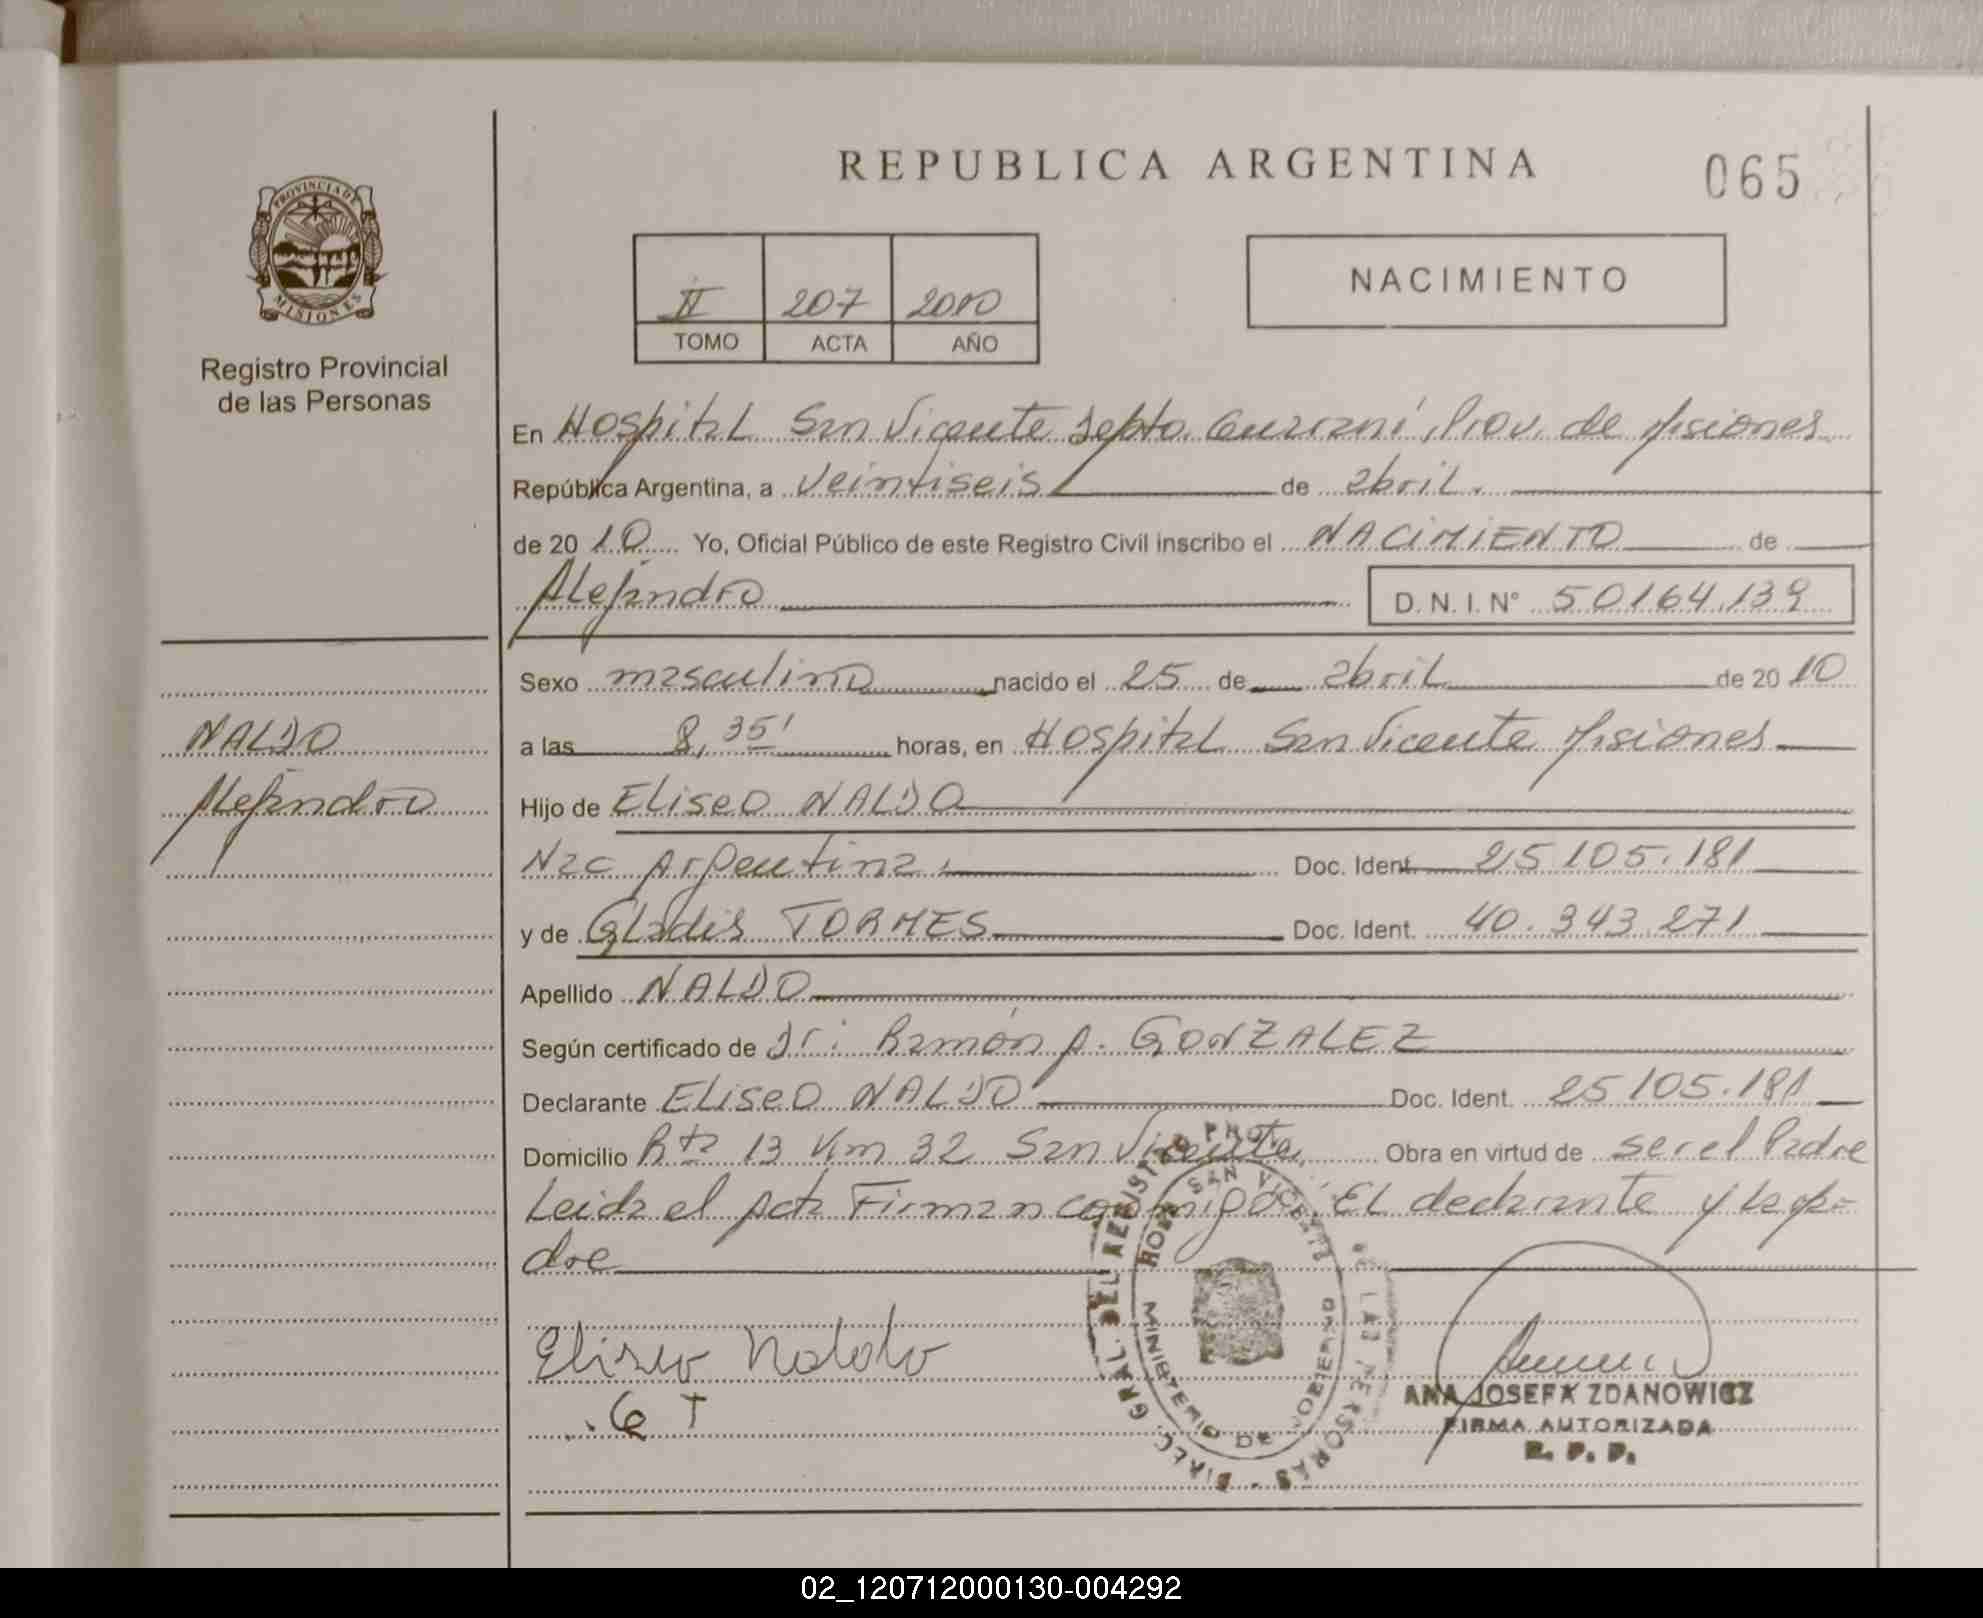 REPUBLICA ARGENTINA
065
PROVINCIA DE
MISIONES
Registro Provincial
de las Personas
II 207 2010
TOMO ACTA AÑO
NACIMIENTO
En Hospital San Vicente Depto. Guaraní, Prov. de Misiones
República Argentina, a veintiseis de abril.
de 2010 Yo, Oficial Público de este Registro Civil inscribo el NACIMIENTO de
Alejandro D. N. I. N° 50164.139
Sexo masculino nacido el 25 de abril de 2010
NALDO
Alejandro
a las 8,35' horas, en Hospital San Vicente Misiones
Hijo de Eliseo NALDO
Nac Argentina. Doc. Ident. 25105.181
y de Gladis TORMES Doc. Ident. 40.343.271
Apellido NALDO
Según certificado de Dr: Ramón A. GONZALEZ
Declarante Eliseo NALDO Doc. Ident. 25105.181
Domicilio Rta 13 Km 32 San Vicente. Obra en virtud de ser el Padre
Leida el Acta Firman conmigo: El declarante y la
dre
Eliseo Naldo
G T
DIREC. GRAL. DEL REGISTRO PROV. DE LAS PERSONAS
SAN VICENTE
MINISTERIO DE GOBIERNO
ANA JOSEFA ZDANOWICZ
FIRMA AUTORIZADA
R. P. P.
02_120712000130-004292